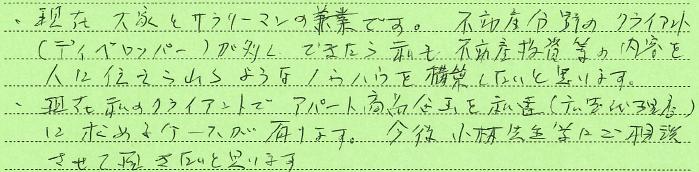 ・現在 大家とサラリーマンの兼業です。 不動産分野のクライアント
(ディベロッパー)が多く できたら私も 不動産投資等の内容を
人に伝えられるようなノウハウを構築したいと思います。
・現在私のクライアントで アパート商品企画を私達(広告代理店)
に求めるケースが有ります。 今後 小林先生等にご相談
させて頂きたいと思います